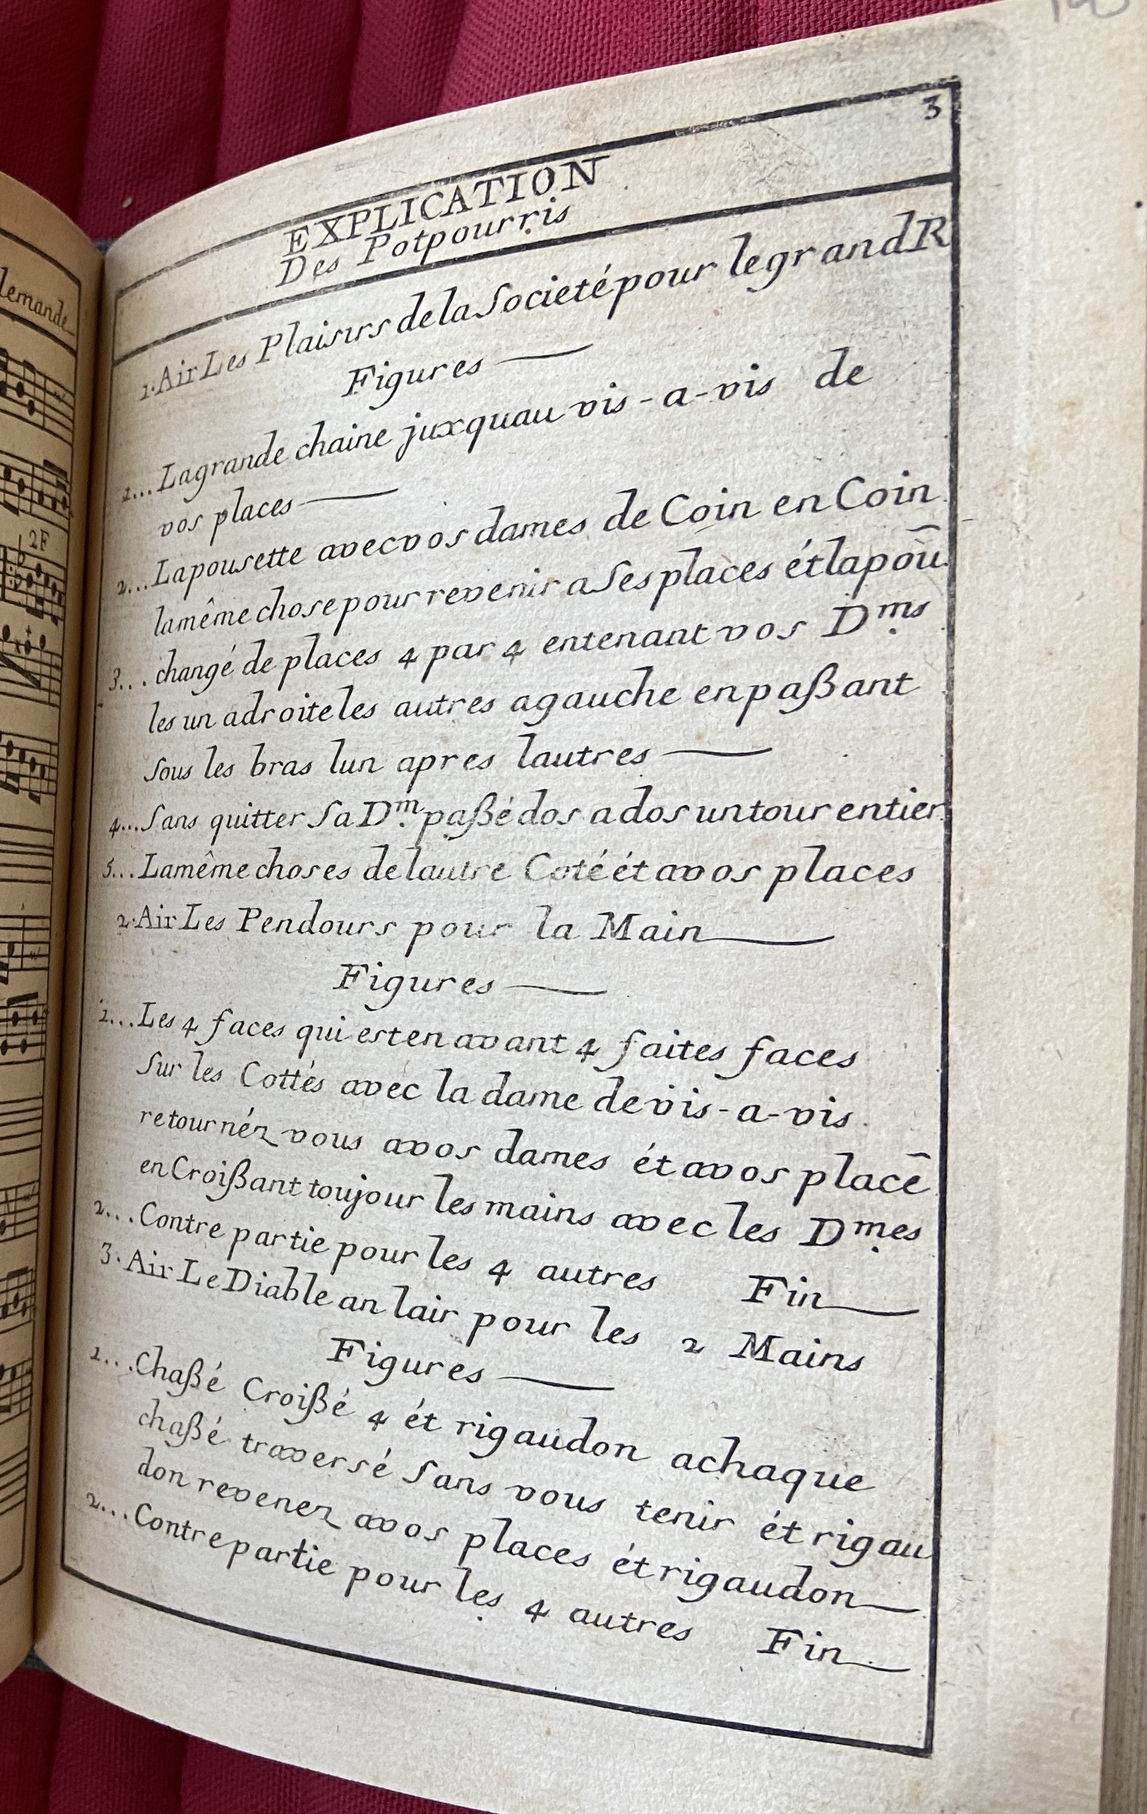 lemande
2F
3
EXPLICATION
Des Potpourris
1. Air Les Plaisirs de la Societé pour le grand R
Figures
1... La grande chaine juxquau vis-a-vis de
vos places
2... La pousette avec vos dames de Coin en Coin
la même chose pour revenir a Ses places ét la poũ
3... changé de places 4 par 4 en tenant vos Dms
les un a droite les autres a gauche en paßant
Sous les bras lun apres lautres
4... Sans quitter Sa Dm paßé dos a dos un tour entier
5... La même choses de lautre Coté ét a vos places
2. Air Les Pendours pour la Main
Figures
1... Les 4 faces qui est en avant 4 faites faces
Sur les Cottés avec la dame de vis-a-vis
retournéz vous a vos dames ét a vos placẽ
en Croißant toujour les mains avec les Dmes
2... Contre partie pour les 4 autres Fin
3. Air Le Diable an lair pour les 2 Mains
Figures
1... Chaßé Croißé 4 ét rigaudon a chaque
chaßé traversé Sans vous tenir ét rigau
don revenez a vos places ét rigaudon
2... Contre partie pour les 4 autres Fin